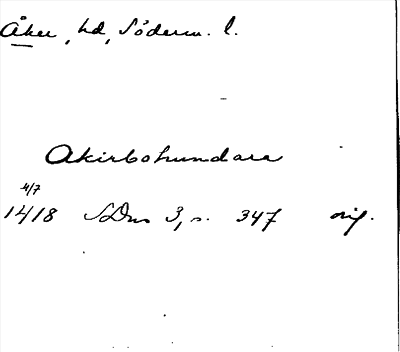 Åker, hd, Söderm. l.
Akirbohundara
4/7
1418 SDns 3, s. 347 orig.